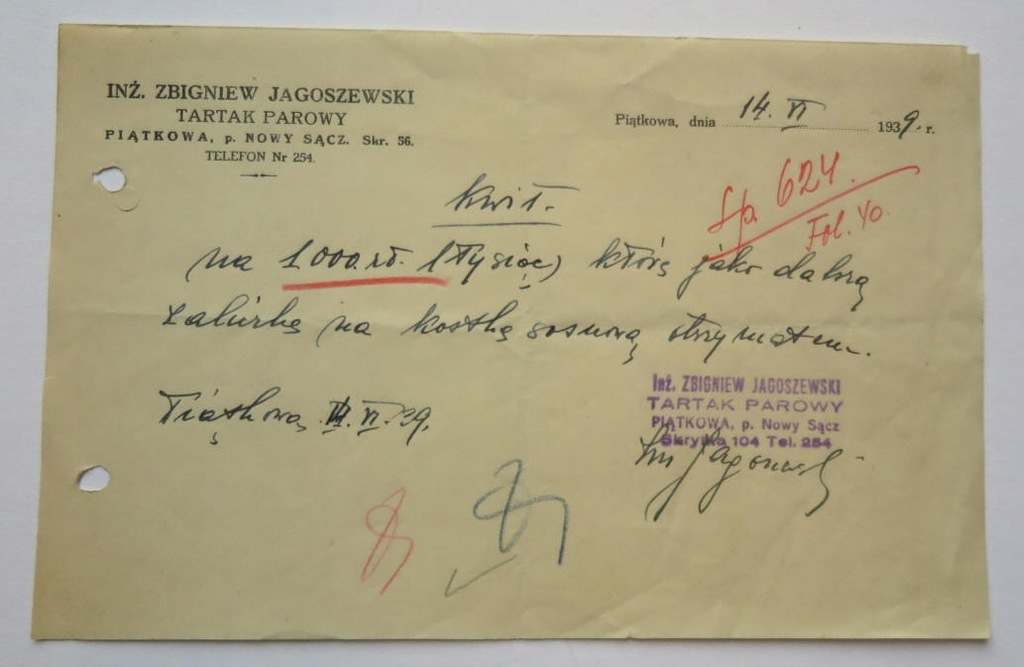 INŻ. ZBIGNIEW JAGOSZEWSKI
TARTAK PAROWY
PIĄTKOWA, p. NOWY SĄCZ. Skr. 56.
TELEFON Nr 254.
Piątkowa, dnia 14. VI 1939. r.
Lp. 624.
Fol. 40.
Kwit.
na 1000.zł. (tysiąc) którą jako dalszą
zaliczkę na kostkę sosnową otrzymałem.
Piątkowa 14. VI. 39.
Inż. ZBIGNIEW JAGOSZEWSKI
TARTAK PAROWY
PIĄTKOWA, p. Nowy Sącz
Skrytka 104 Tel. 254